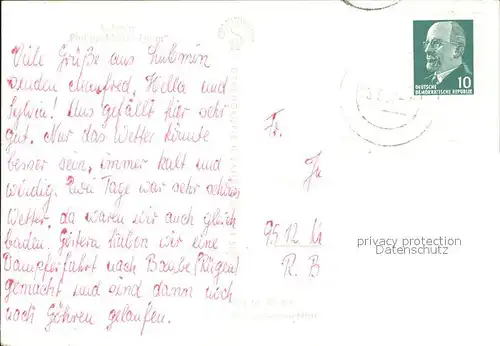 Viele Grüße aus Lubmin
senden Manfred, Hella und
Sylvia! Uns gefällt hier sehr
gut. Nur das Wetter könnte
besser sein, immer kalt und
windig. Zwei Tage war sehr schönes
Wetter, da waren wir auch gleich
baden. Gestern haben wir eine
Dampferfahrt nach Baabe (Rügen)
gemacht und sind dann noch
nach Göhren gelaufen.
Fr.
9512
R. B
10
DEUTSCHE
DEMOKRATISCHE REPUBLIK
privacy protection
Datenschutz